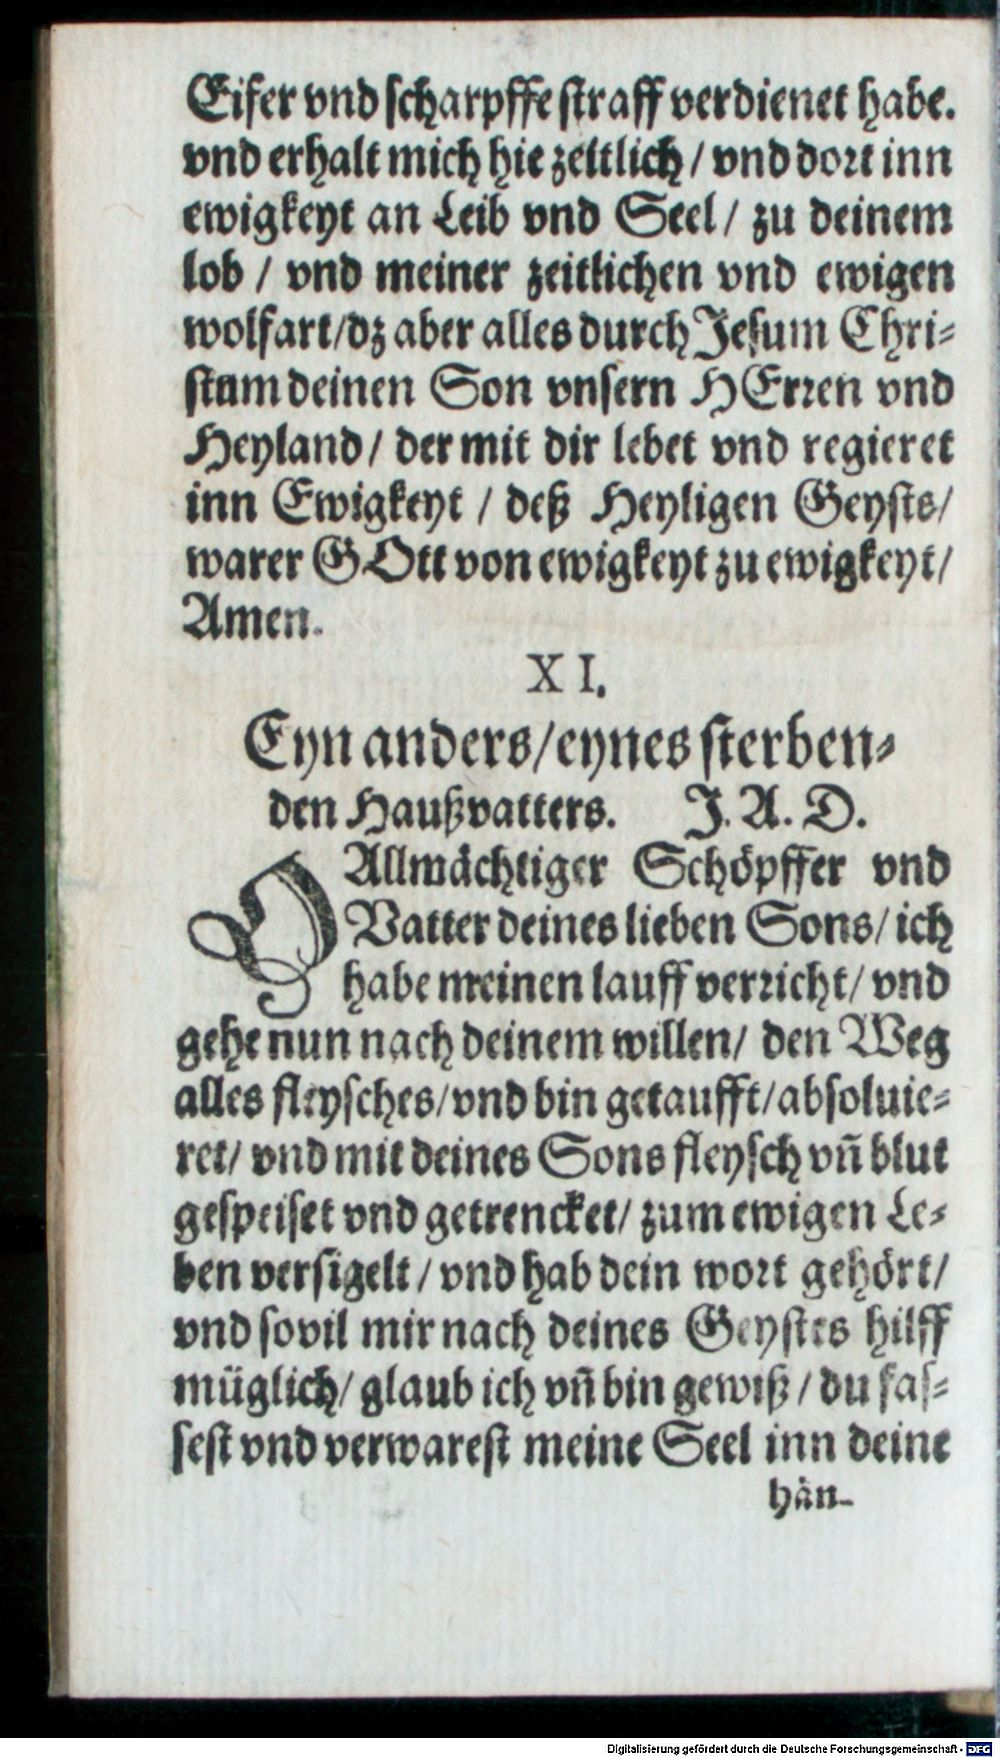 Eifer vnd scharpffe straff verdienet habe.
vnd erhalt mich hie zeitlich / vnd dort inn
ewigkeyt an Leib vnd Seel / zu deinem
lob / vnd meiner zeitlichen vnd ewigen
wolfart/dz aber alles durch Jesum Chri-
stum deinen Son vnsern HErren vnd
Heyland / der mit dir lebet vnd regieret
inn Ewigkeyt / deß Heyligen Geysts/
warer GOtt von ewigkeyt zu ewigkeyt/
Amen.
XI.
Eyn anders/eynes sterben-
den Haußvatters. J. A. D.
O Allmächtiger Schöpffer vnd
Vatter deines lieben Sons/ ich
habe meinen lauff verricht/ vnd
gehe nun nach deinem willen/ den Weg
alles fleysches/vnd bin getaufft/absoluie-
ret/ vnd mit deines Sons fleysch vñ blut
gespeiset vnd getrencket/ zum ewigen Le-
ben versigelt / vnd hab dein wort gehört/
vnd sovil mir nach deines Geystes hilff
müglich/ glaub ich vñ bin gewiß / du fas-
sest vnd verwarest meine Seel inn deine
hän-
Digitalisierung gefördert durch die Deutsche Forschungsgemeinschaft - DFG